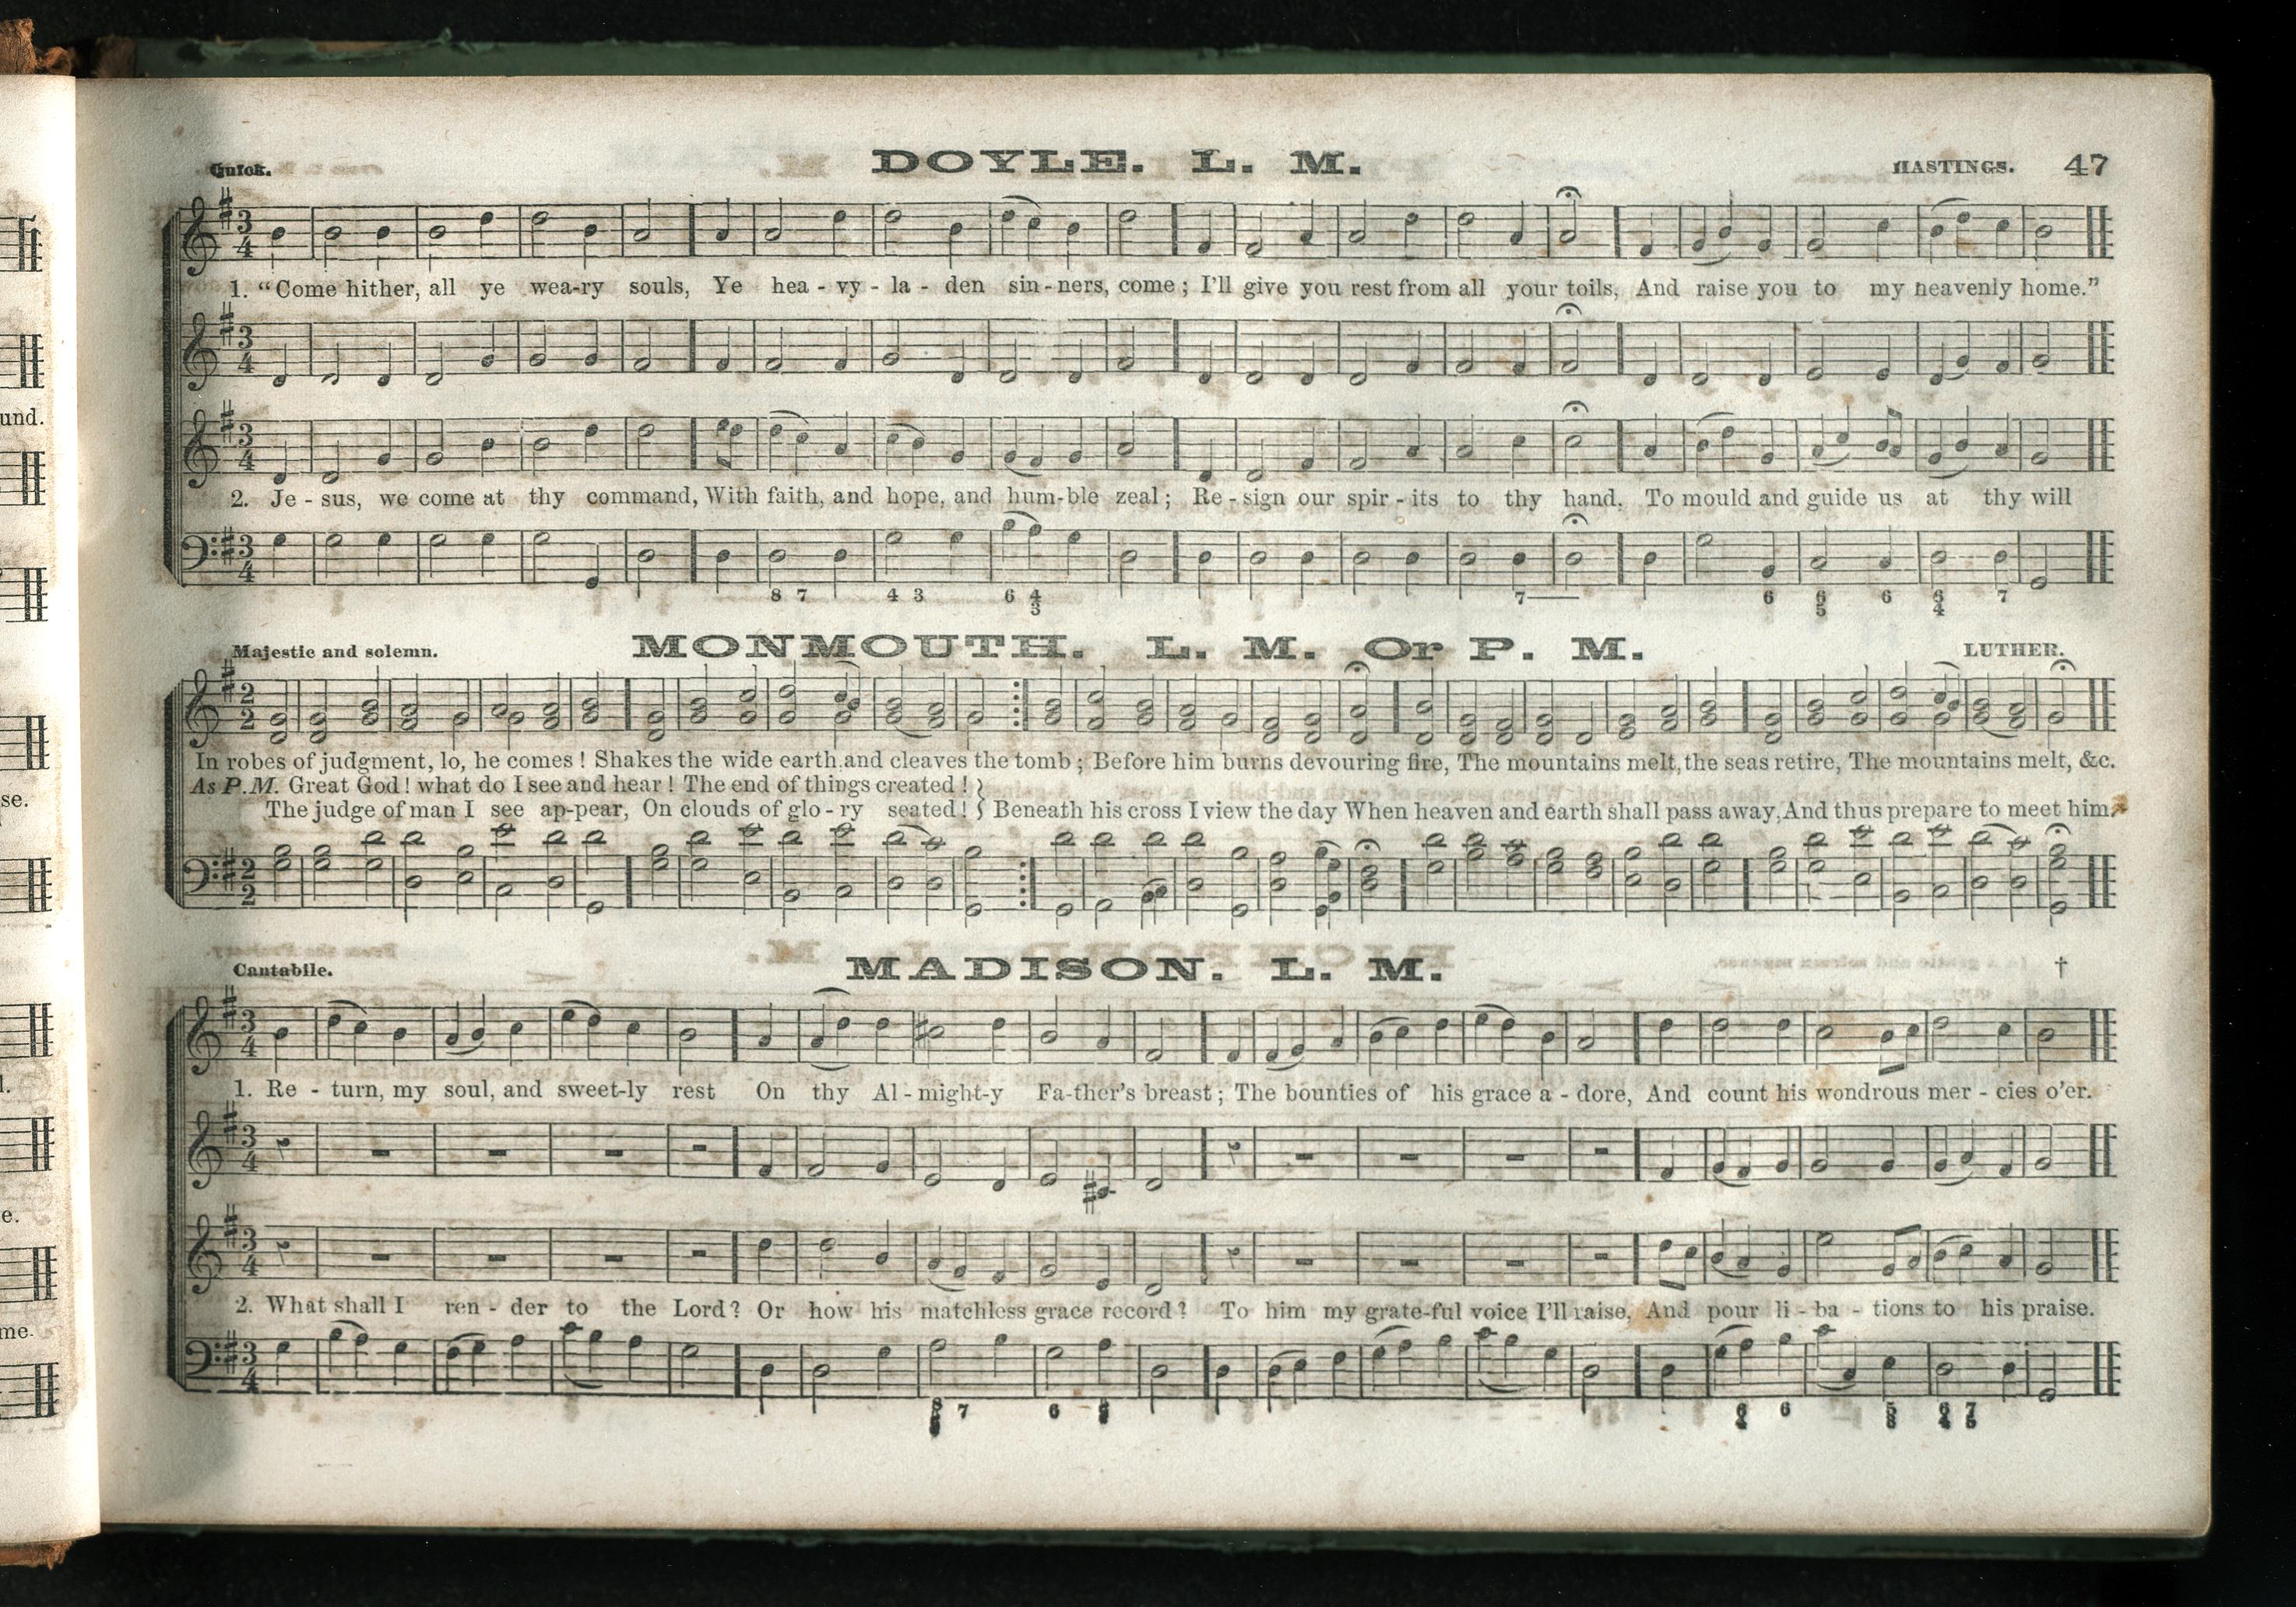 und.
se.
l.
e.
me.
Quick. DOYLE. L. M. HASTINGS. 47
1. “Come hither, all ye wea-ry souls, Ye hea - vy - la - den sin - ners, come ; I'll give you rest from all your toils, And raise you to my heavenly home.”
2. Je - sus, we come at thy command, With faith, and hope, and hum-ble zeal ; Re - sign our spir - its to thy hand, To mould and guide us at thy will
8 7 4 3 6 4 3 7 6 6 5 6 6 4 7
Majestic and solemn. MONMOUTH. L. M. Or P. M. LUTHER.
In robes of judgment, lo, he comes ! Shakes the wide earth and cleaves the tomb ; Before him burns devouring fire, The mountains melt, the seas retire, The mountains melt, &c.
As P. M. Great God ! what do I see and hear ! The end of things created ! }
The judge of man I see ap-pear, On clouds of glo - ry seated ! } Beneath his cross I view the day When heaven and earth shall pass away, And thus prepare to meet him.
Cantabile. MADISON. L. M. †
1. Re - turn, my soul, and sweet-ly rest On thy Al - might-y Fa-ther's breast ; The bounties of his grace a - dore, And count his wondrous mer - cies o'er.
2. What shall I ren - der to the Lord ? Or how his matchless grace record ? To him my grate-ful voice I'll raise, And pour li - ba - tions to his praise.